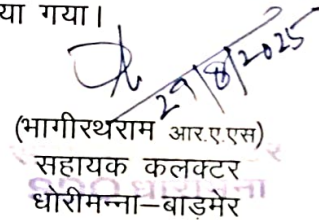 या गया।
29/8/2025
(भागीरथराम आर.ए.एस)
सहायक कलक्टर
धोरीमन्ना-बाड़मेर